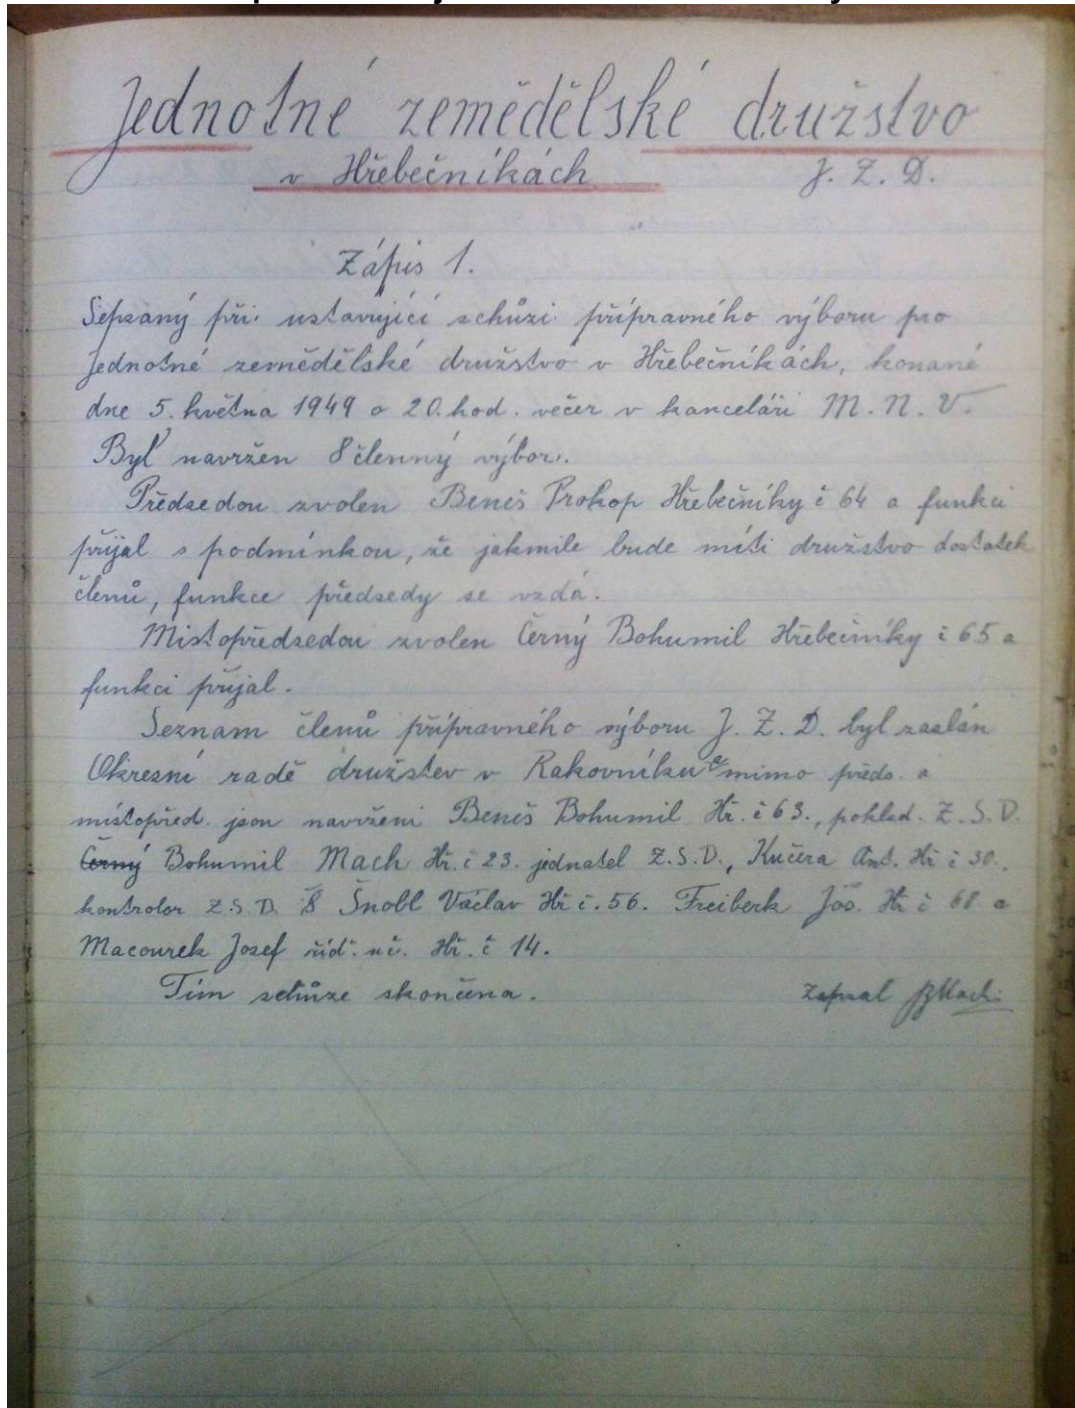 Jednotné zemědělské družstvo
v Hřebečníkách J. Z. D.
Zápis 1.
Sepsaný při ustavující schůzi přípravného výboru pro
Jednotné zemědělské družstvo v Hřebečníkách, konané
dne 5. května 1949 o 20. hod. večer v kanceláři M. N. V.
Byl navržen 8 členný výbor.
Předsedou zvolen Beneš Prokop Hřebečníky č 64 a funkci
přijal s podmínkou, že jakmile bude míti družstvo dostatek
členů, funkce předsedy se vzdá.
Místopředsedou zvolen Černý Bohumil Hřebečníky č 65 a
funkci přijal.
Seznam členů přípravného výboru J. Z. D. byl zaslán
Okresní radě družstev v Rakovníku a mimo předs. a
místopřed. jsou navrženi Beneš Bohumil Hř. č 63., poklad. Z. S. D.
Černý Bohumil Mach Hř. č 23. jednatel Z. S. D., Kučera Ant. Hř č 30.
kontrolor Z. S. D. Šnobl Václav Hř č. 56. Freiberk Jos. Hř č 68 a
Macourek Josef říd. uč. Hř. č 14.
Tím schůze skončena. Zapsal BMach